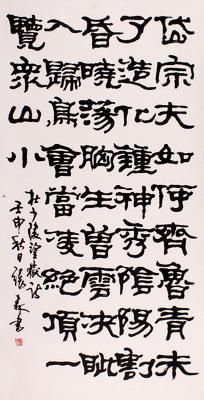 岱宗夫如何齊魯青未
了造化鍾神秀陰陽割
昏曉蕩胸生曾雲決眦
入歸鳥會當凌絕頂一
覽衆山小
杜少陵望嶽詩
壬申秋日張森書